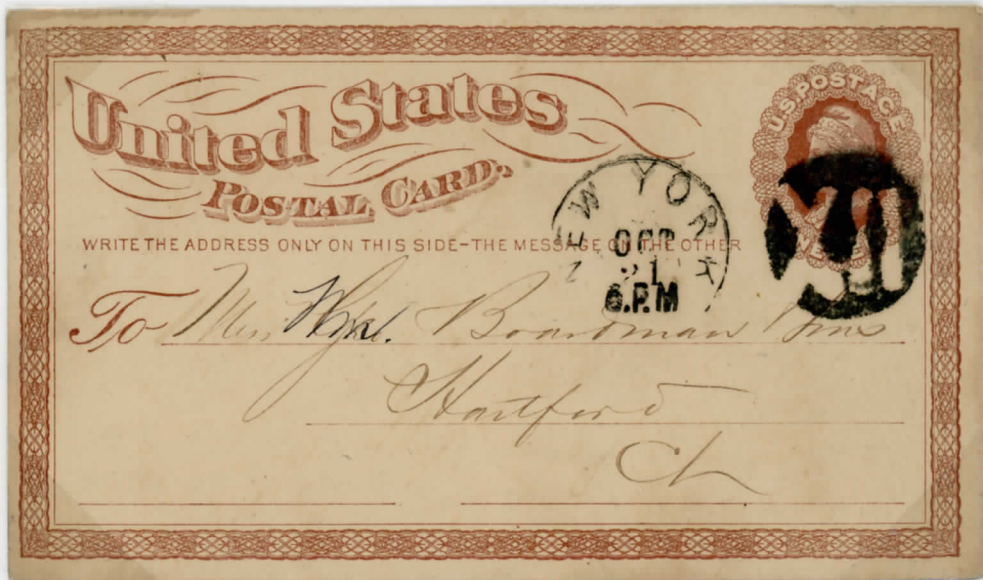 United States
POSTAL CARD.
U.S. POSTAGE
WRITE THE ADDRESS ONLY ON THIS SIDE-THE MESSAGE ON THE OTHER
NEW YORK
OCT
21
6.P.M
To Boardman
Hartford
Ct